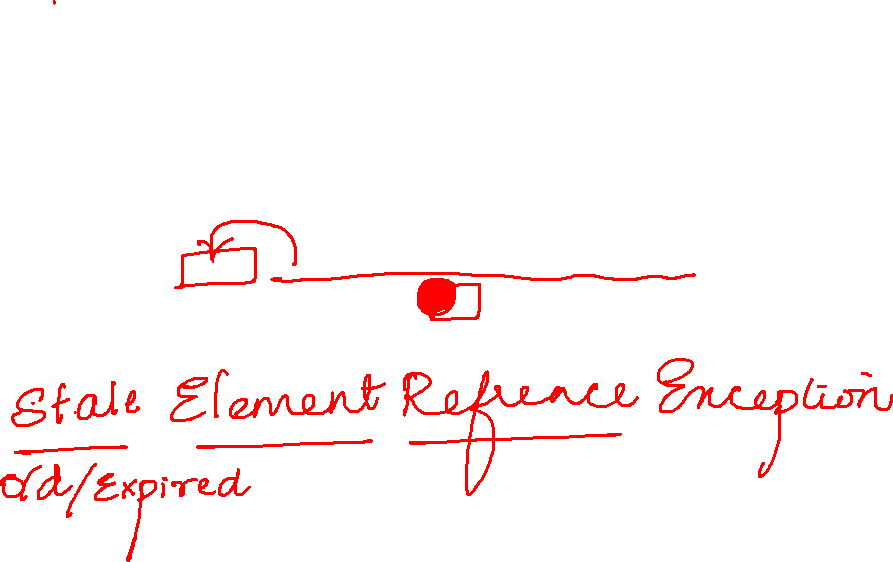 Stale Element Refrence Exception
old/Expired